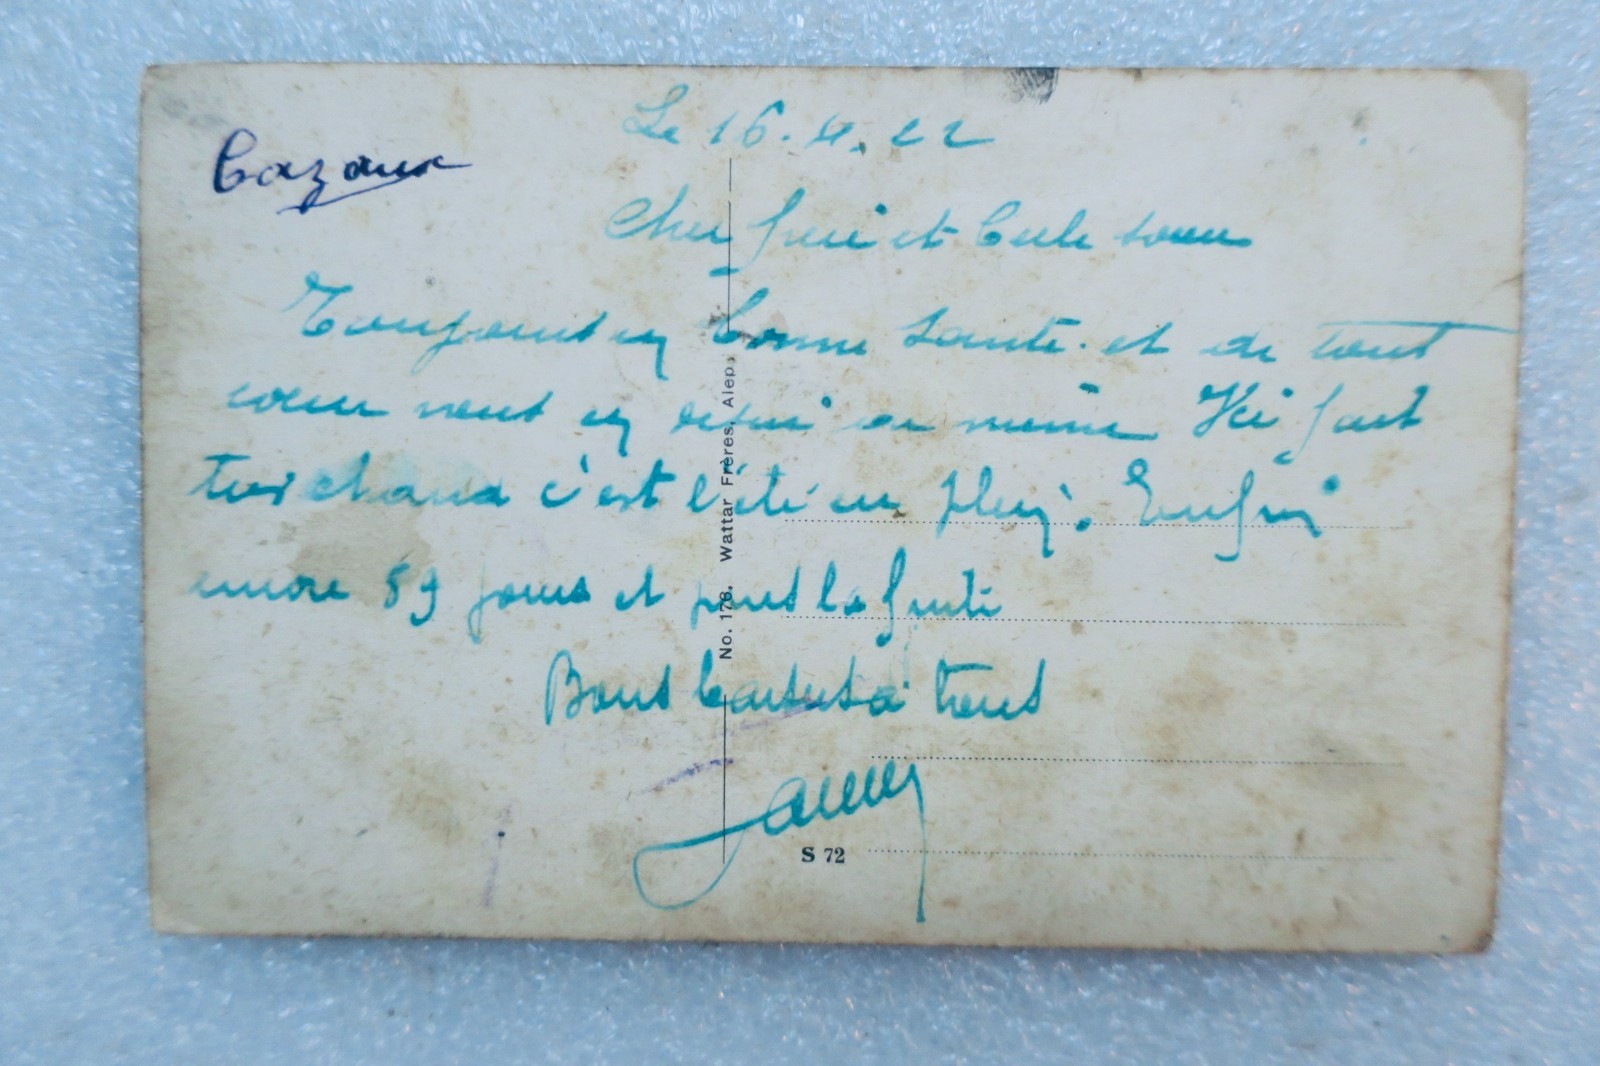 Cazaux
Le 16.4.22
Cher frère et Belle soeur
Toujours en bonne santé et de tout
coeur vous en désire de même Ici fait
très chaud c'est l'été en plein. Enfin
encore 89 jours et puis la
Bons baisers à tous
No. 178. Wattar Frères, Alep
S 72